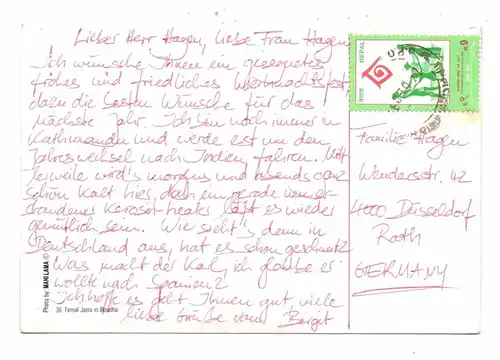 Lieber Herr Hagen, liebe Frau Hagen
Ich wünsche Ihnen ein gesegnetes
frohes und friedliches Weihnachtsfest,
dazu die besten Wünsche für das
nächste Jahr. Ich bin noch immer in
Kathmandu und werde erst um den
Jahreswechsel nach Indien fahren. Mitt-
lerweile wird's morgens und abends ganz
schön kalt hier, doch ein gerade
erstandener Kerosin-heater läßt es wieder
gemütlich sein. Wie sieht's denn in
Deutschland aus, hat es schon geschneit?
Was macht der Karl, ich glaube er
wollte nach Spanien?
Ich hoffe es geht Ihnen gut, viele
liebe Grüße von Birgit
NEPAL
Familie Hagen
Wendersstr. 42
4000 Düsseldorf
Rath
GERMANY
Photo by: MANI LAMA ©
38 Temal Jatra in Boudha